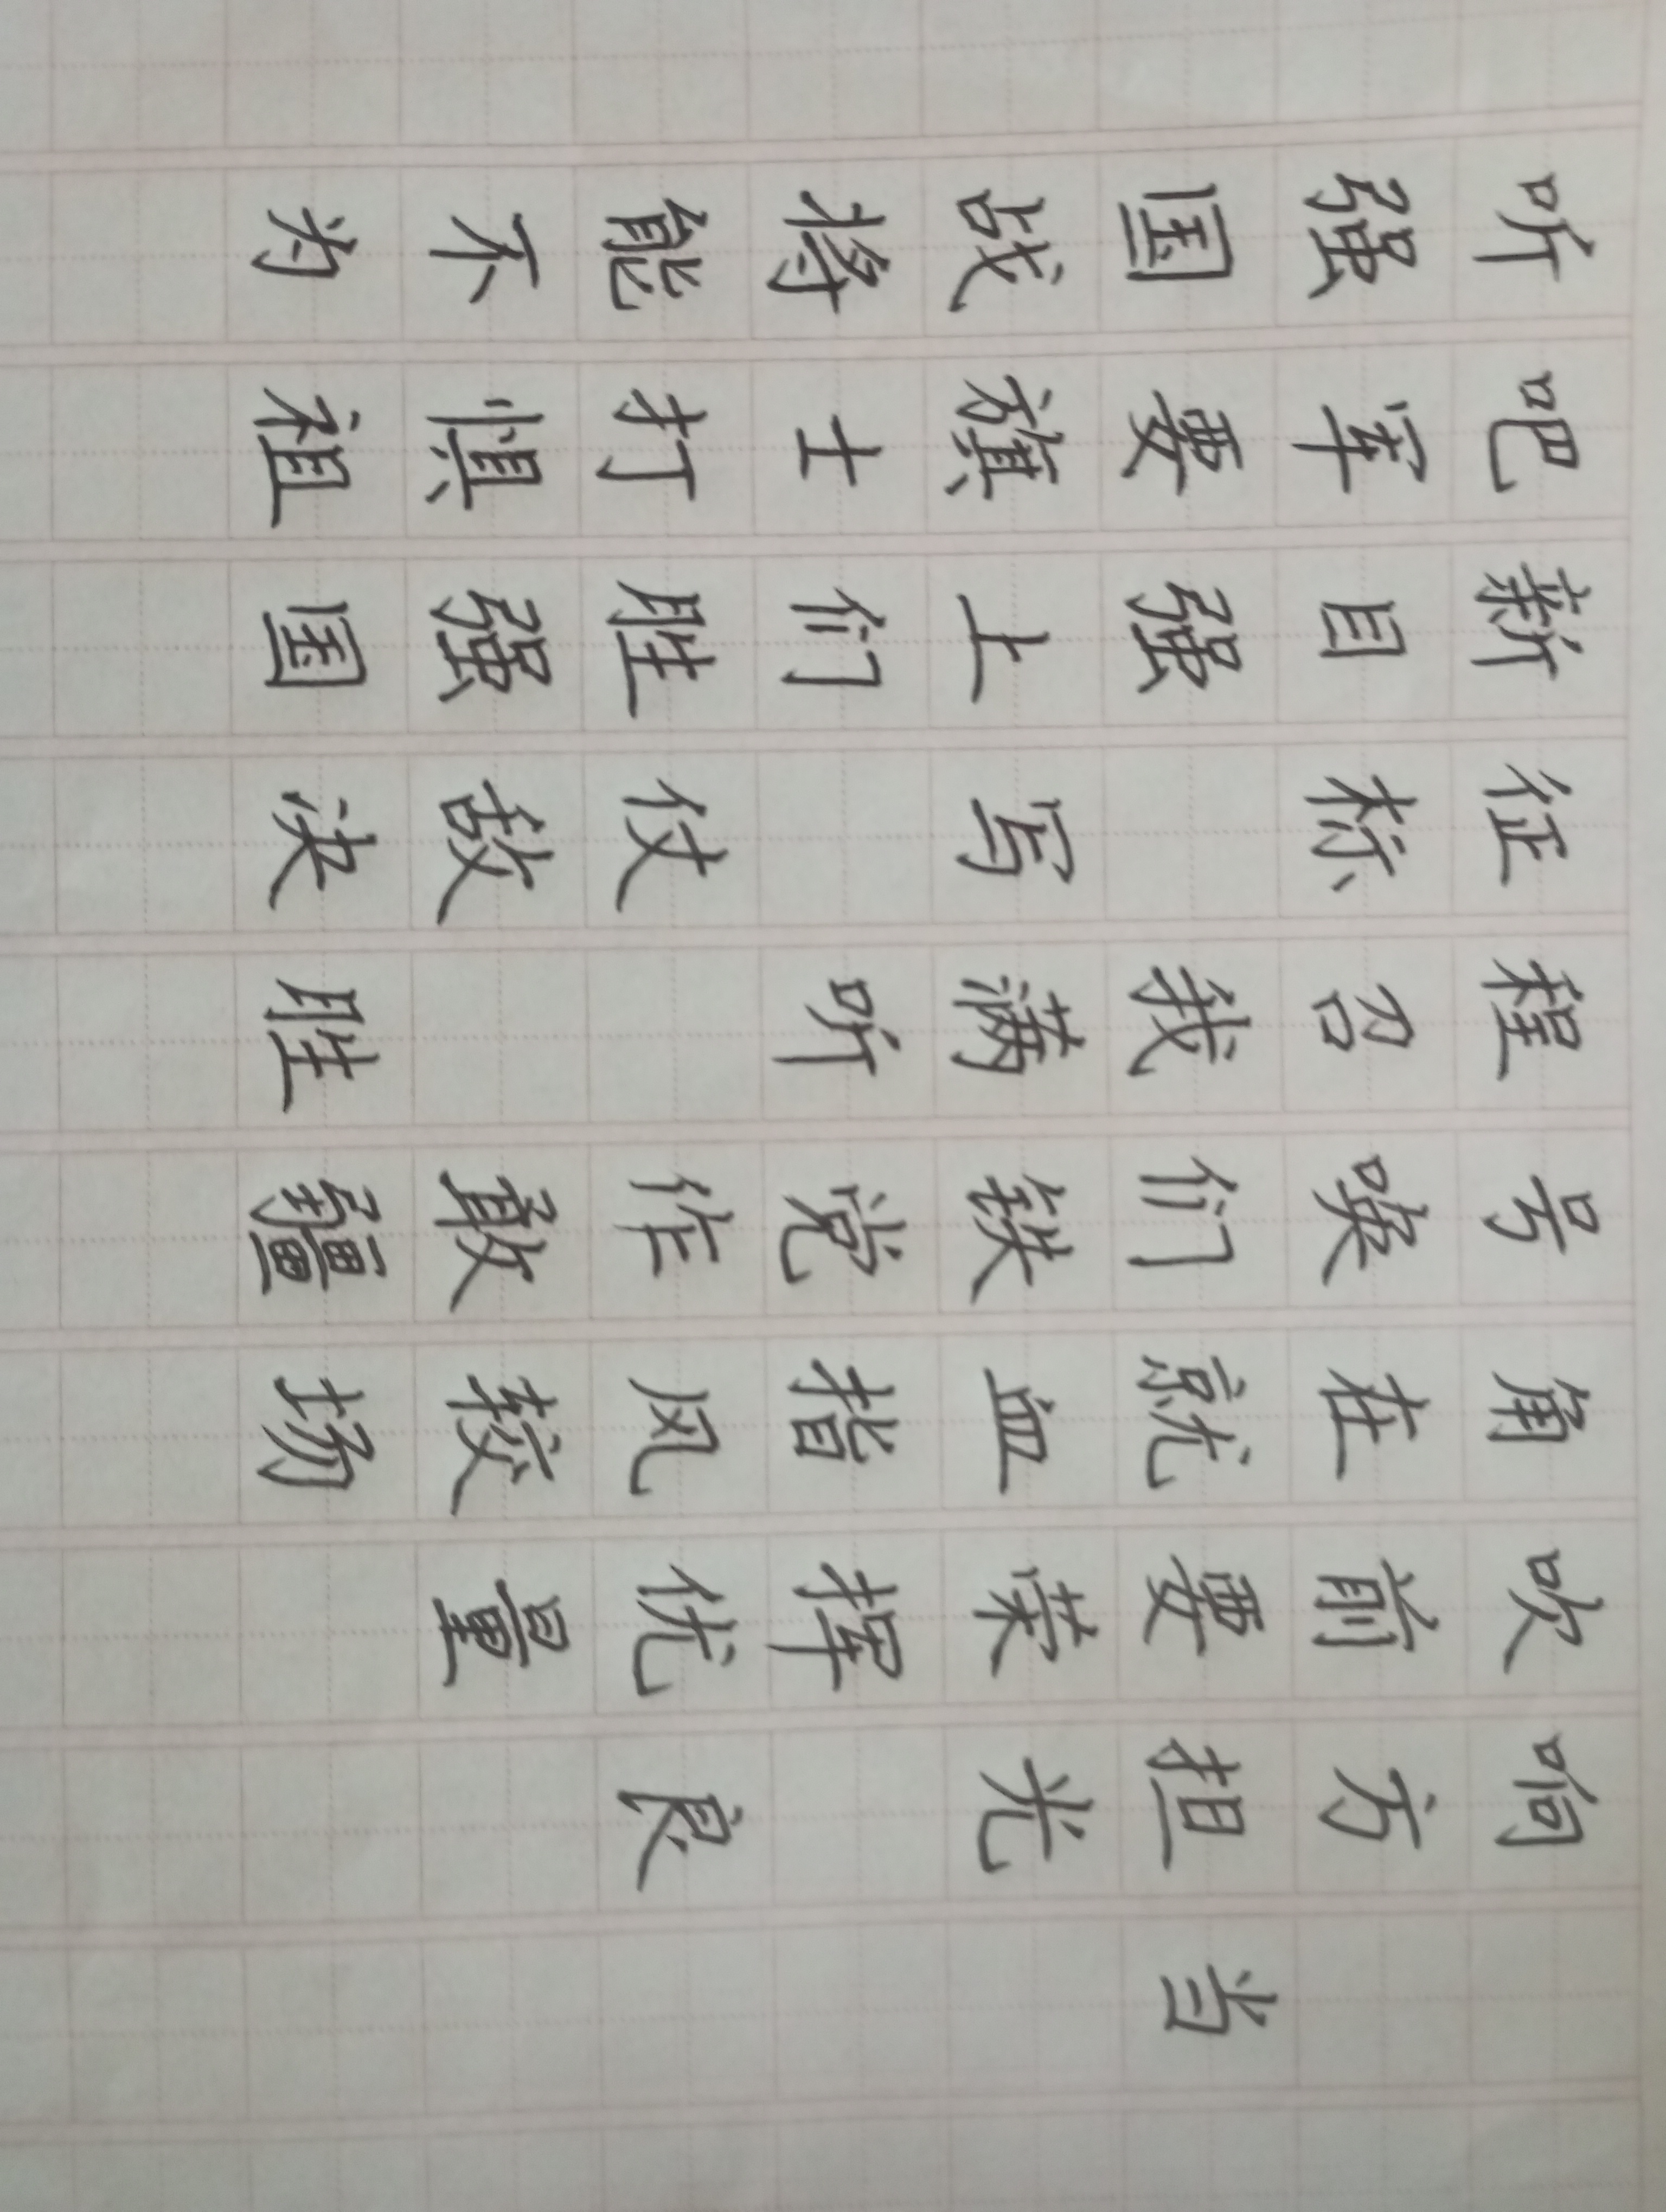 听吧新征程号角吹响
强军目标召唤在前方
国要强 我们就要担当
战旗上写满铁血荣光
将士们 听党指挥
能打胜仗 作风优良
不惧强敌 敢较量
为祖国决胜疆场